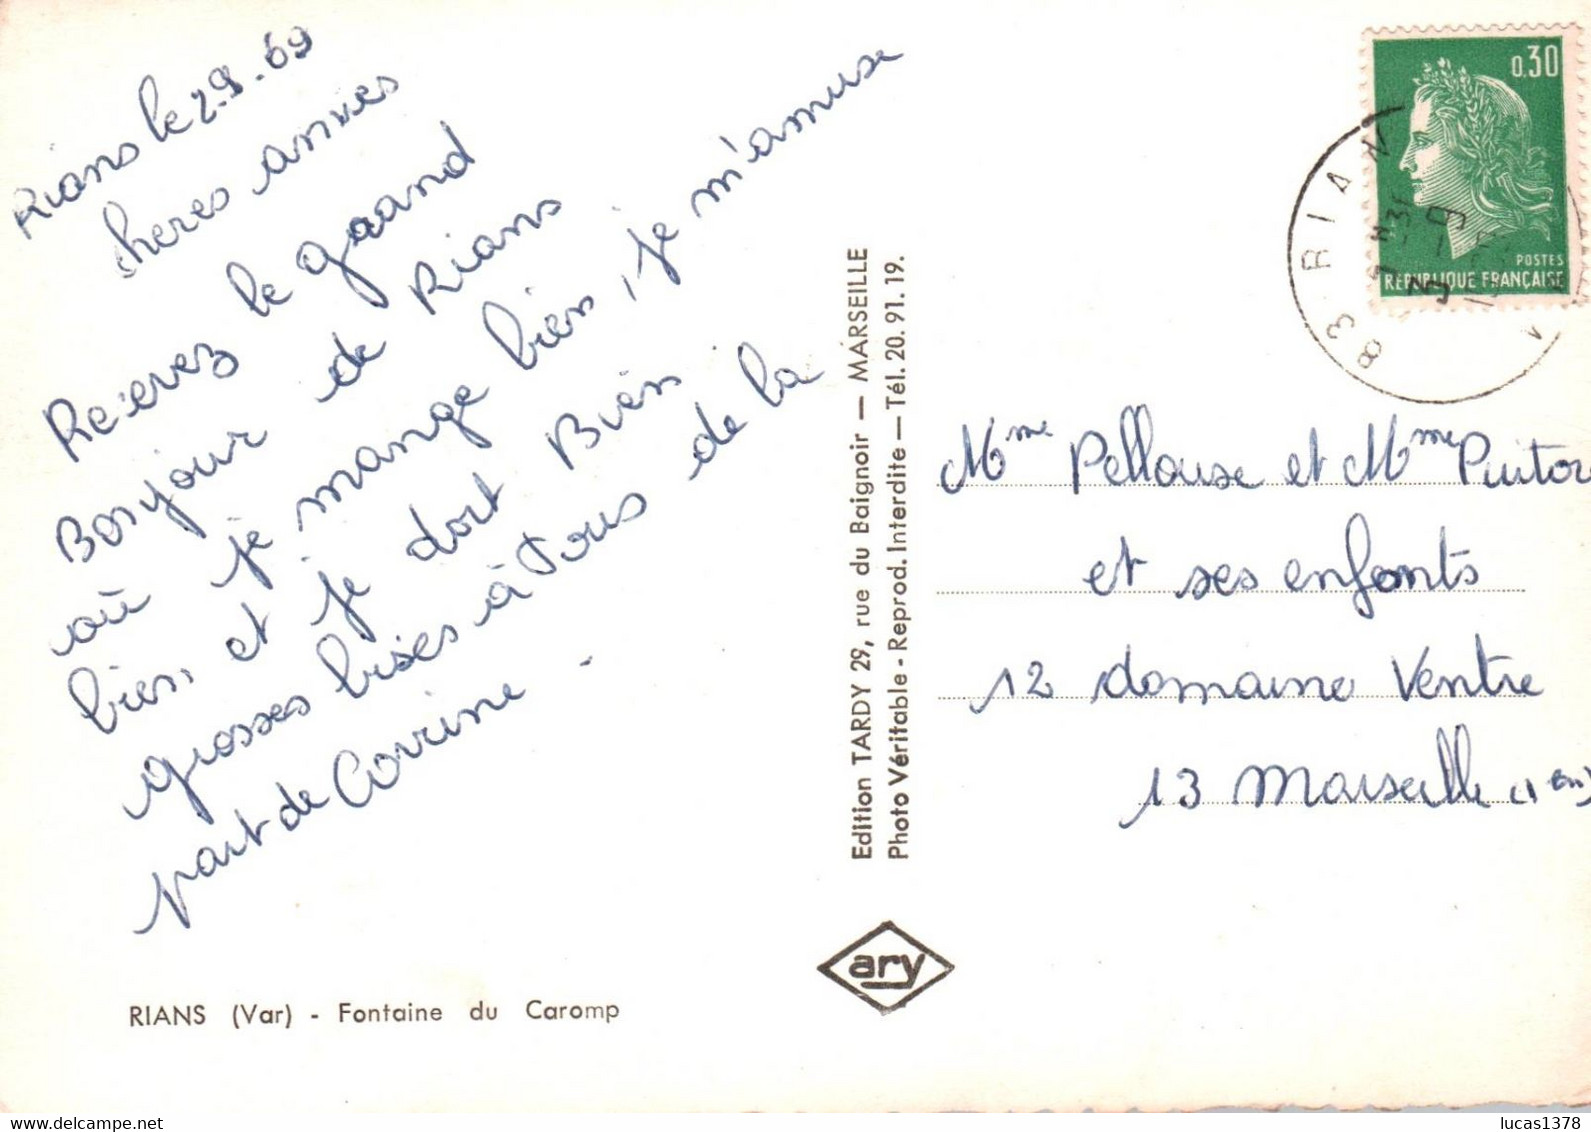 Rians le 2.9.69
chères amies
Recevez le grand
Bonjour de Rians
où je mange bien, je m'amuse
bien, et je dort Bien
grosses bises à tous de la
part de Corinne.
RIANS (Var) - Fontaine du Caromp
Edition TARDY 29, rue du Baignoir — MARSEILLE
Photo Véritable - Reprod. Interdite — Tél. 20.91.19.
ary
0,30
POSTES
RÉPUBLIQUE FRANÇAISE
83 RIAN
Mme Pellouse et Mme
et ses enfants
12 domaine Ventre
13 Marseille
lucas1378